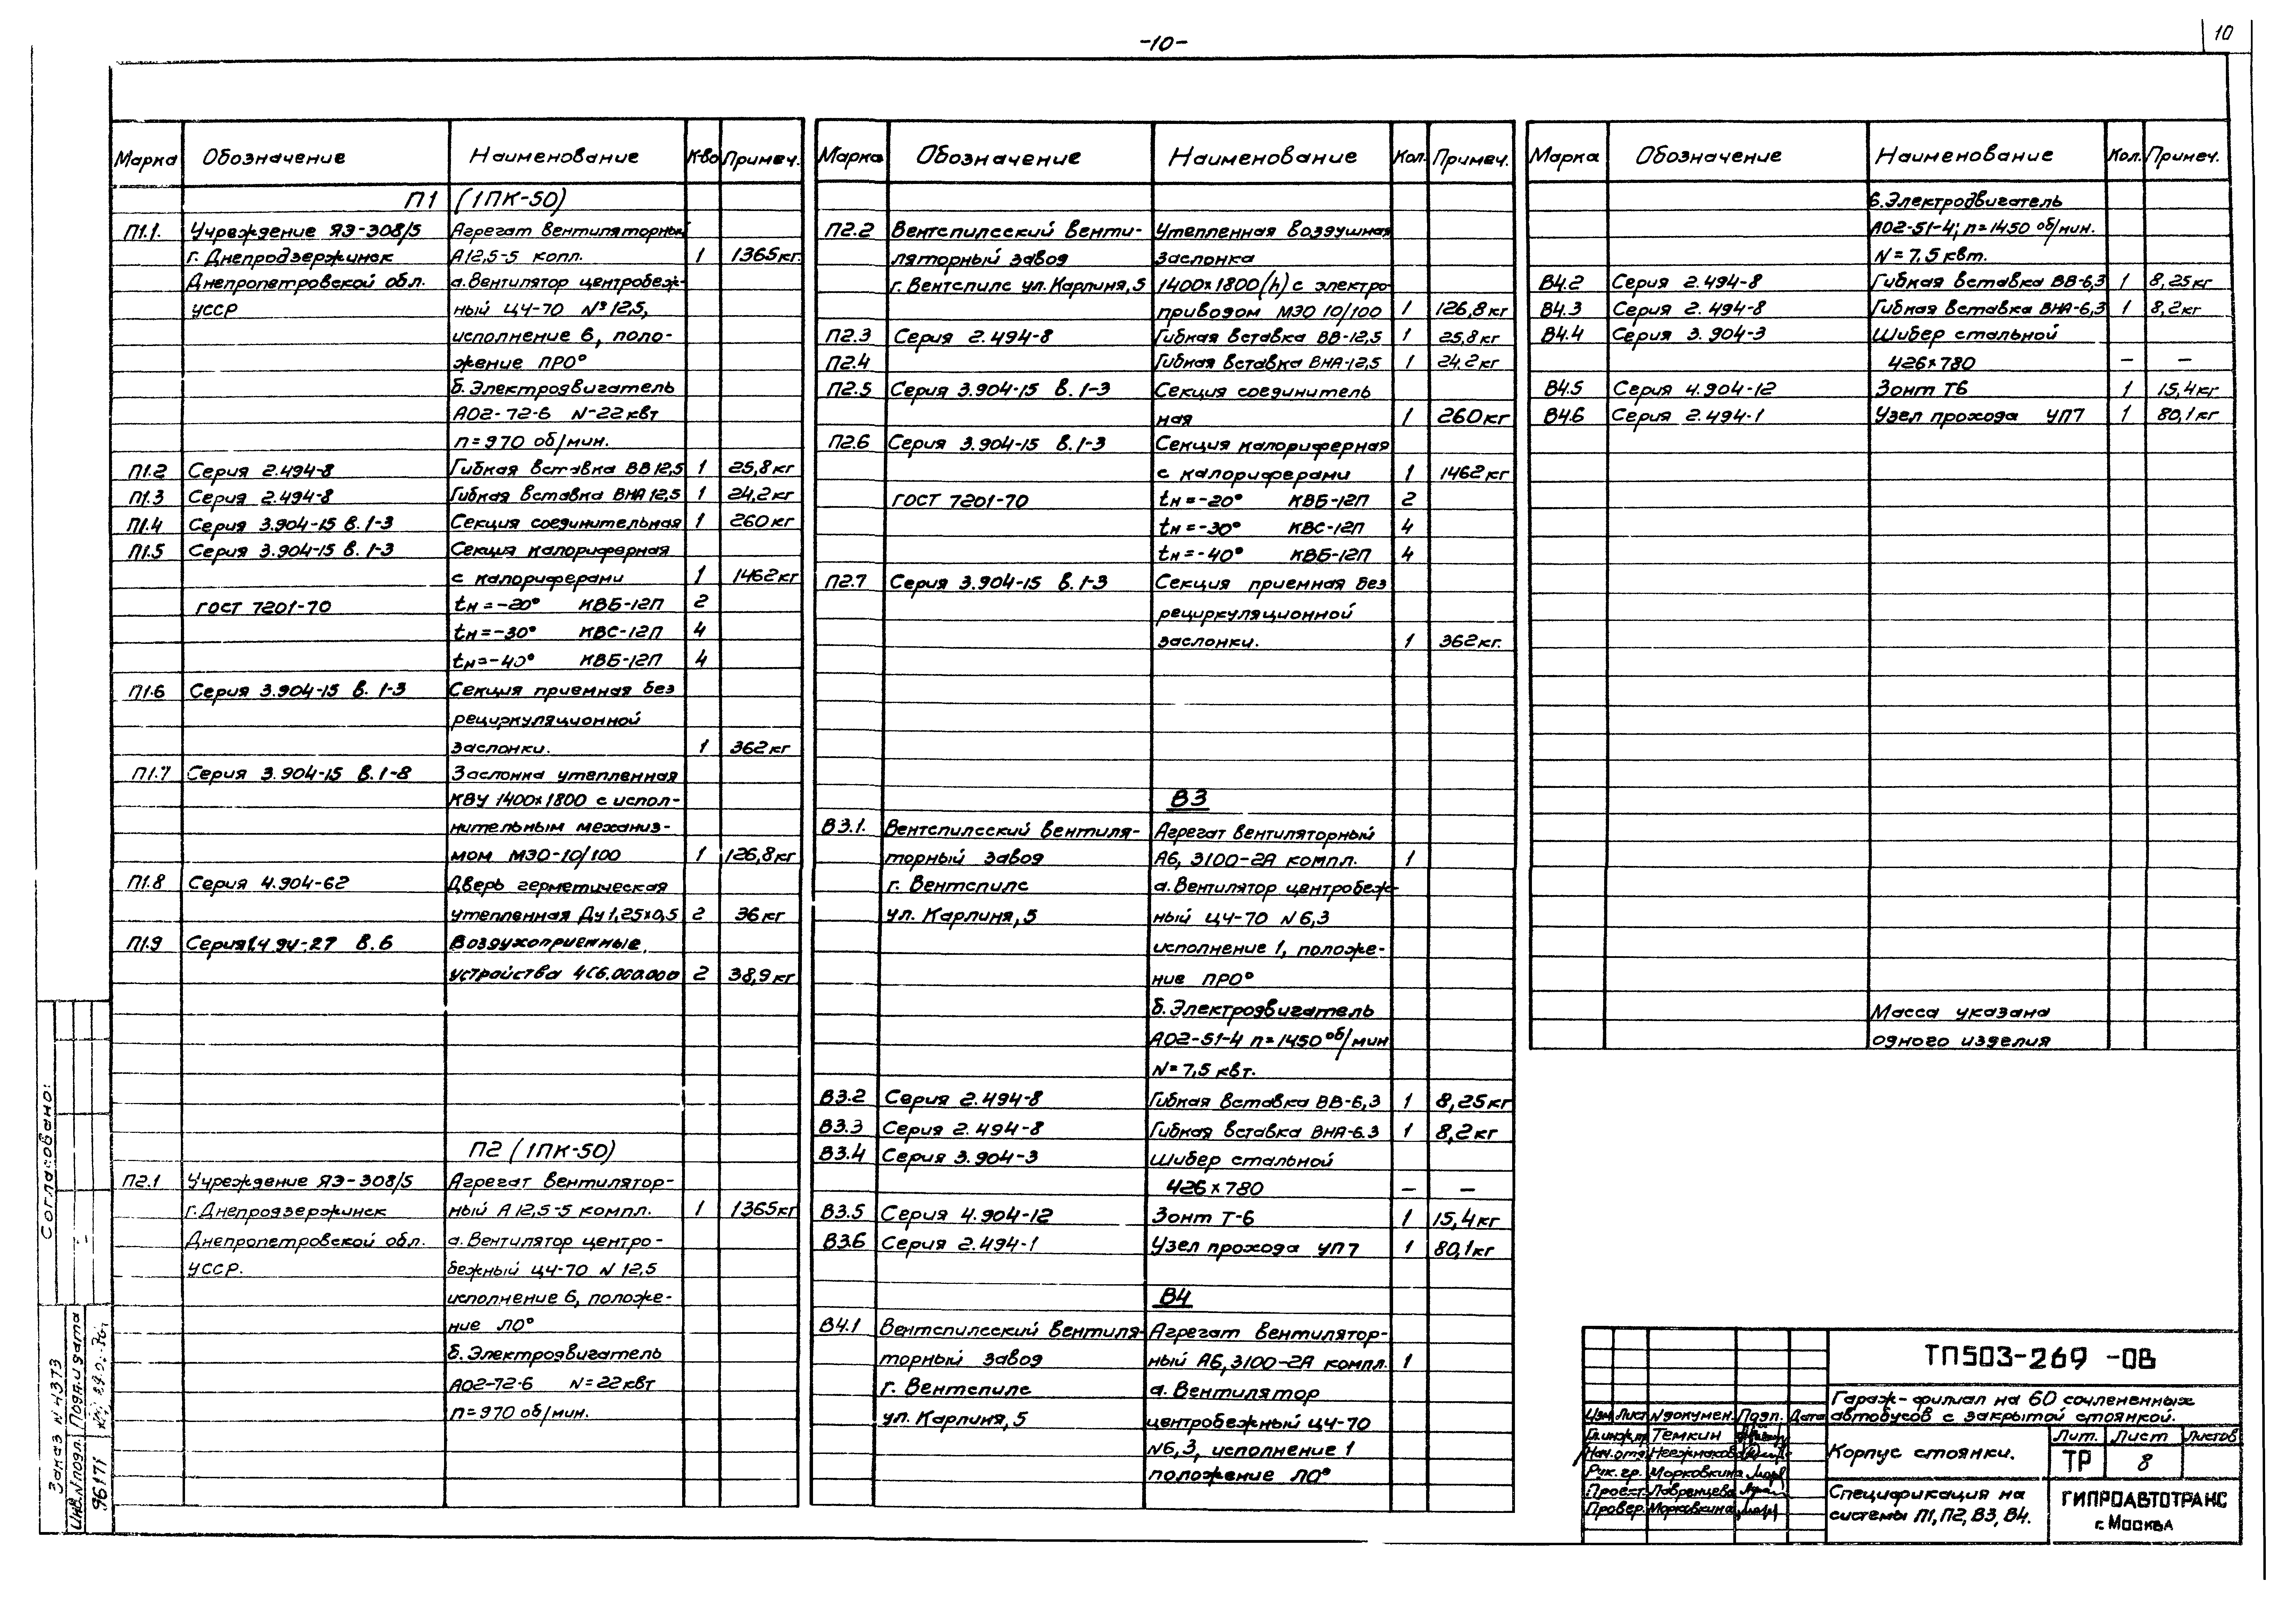 -10-
10
Марка Обозначение Наименование К-во Примеч.
П1 (1ПК-50)
П1.1. Учреждение ЯЭ-308/5 Агрегат вентиляторный
г. Днепродзержинск А12,5-5 копл. 1 1365кг.
Днепропетровской обл. а.Вентилятор центробеж-
УССР ный Ц4-70 №12,5,
исполнение 6, поло-
жение ПР0°
б.Электродвигатель
А02-72-6 N-22квт
n=970 об/мин.
П1.2 Серия 2.494-8 Гибкая вставка ВВ12,5 1 25,8кг
П1.3 Серия 2.494-8 Гибкая вставка ВНА12,5 1 24,2кг
П1.4 Серия 3.904-15 в.1-3 Секция соединительная 1 260кг
П1.5 Серия 3.904-15 в.1-3 Секция калориферная
с калориферами 1 1462кг
ГОСТ 7201-70 tн=-20° КВБ-12П 2
tн=-30° КВС-12П 4
tн=-40° КВБ-12П 4
П1.6 Серия 3.904-15 в. 1-3 Секция приемная без
рециркуляционной
заслонки. 1 362кг
П1.7 Серия 3.904-15 в.1-8 Заслонка утепленная
КВУ 1400х1800 с испол-
нительным механиз-
мом МЭО-10/100 1 126,8кг
П1.8 Серия 4.904-62 Дверь герметическая
утепленная Ду1,25х0,5 2 36кг
П1.9 Серия1.494-27 в.6 Воздухоприемные
устройства 4С6.000.000 2 38,9кг
П2 (1ПК-50)
П2.1 Учреждение ЯЭ-308/5 Агрегат вентилятор-
г.Днепродзержинск ный А12,5-5 компл. 1 1365кг
Днепропетровской обл. а.Вентилятор центро-
УССР. бежный Ц4-70 N 12,5
исполнение 6, положе-
ние Л0°
б.Электродвигатель
А02-72-6 N=22квт
n=970 об/мин.
Марка Обозначение Наименование Кол. Примеч.
П2.2 Вентспилсский венти- Утепленная воздушная
ляторный завод заслонка
г.Вентспилс ул.Карлиня,5 1400х1800(h) с электро-
приводом МЭО 10/100 1 126,8кг
П2.3 Серия 2.494-8 Гибкая вставка ВВ-12,5 1 25,8кг
П2.4 Гибкая вставка ВНА-12,5 1 24,2кг
П2.5 Серия 3.904-15 в.1-3 Секция соединитель
ная 1 260кг
П2.6 Серия 3.904-15 в.1-3 Секция калориферная
с калориферами 1 1462кг
ГОСТ 7201-70 tн=-20° КВБ-12П 2
tн=-30° КВС-12П 4
tн=-40° КВБ-12П 4
П2.7 Серия 3.904-15 в.1-3 Секция приемная без
рециркуляционной
заслонки. 1 362кг.
В3
В3.1. Вентспилсский вентиля- Агрегат вентиляторный
торный завод А6, 3100-2А компл. 1
г. Вентспилс а.Вентилятор центробеж-
ул. Карлиня,5 ный Ц4-70 N6,3
исполнение 1, положе-
ние ПР0°
б.Электродвигатель
А02-51-4 n=1450 об/мин
N=7,5 квт.
В3.2 Серия 2.494-8 Гибкая вставка ВВ-6,3 1 8,25кг
В3.3 Серия 2.494-8 Гибкая вставка ВНА-6.3 1 8,2кг
В3.4 Серия 3.904-3 Шибер стальной
426х780 — —
В3.5 Серия 4.904-12 Зонт Т-6 1 15,4кг
В3.6 Серия 2.494-1 Узел прохода УП7 1 80,1кг
В4
В4.1 Вентспилсский вентиля- Агрегат вентилятор-
торный завод ный А6,3100-2А компл. 1
г. Вентспилс а. Вентилятор
ул. Карлиня,5 центробежный Ц4-70
N6,3, исполнение 1
положение Л0°
Марка Обозначение Наименование Кол. Примеч.
б.Электродвигатель
А02-51-4; n=1450 об/мин.
N=7,5 квт.
В4.2 Серия 2.494-8 Гибкая вставка ВВ-6,3 1 8,25кг
В4.3 Серия 2.494-8 Гибкая вставка ВНА-6,3 1 8,2кг
В4.4 Серия 3.904-3 Шибер стальной
426х780 — —
В4.5 Серия 4.904-12 Зонт Т6 1 15,4кг
В4.6 Серия 2.494-1 Узел прохода УП7 1 80,1кг
Масса указана
одного изделия
Согласовано:
Заказ N 4373
Инв.Nподл. Подп.и дата
ТП503-269 -ОВ
Гараж-филиал на 60 сочлененных
автобусов с закрытой стоянкой.
Изм. Лист Nдокумен. Подп. Дата
Гл.инж.пр Темкин
Нач.отд Неезжмаков
Рук. гр. Морковкина
Проект. Лавренцева
Провер. Морковкина
Корпус стоянки.
Лит. Лист Листов
ТР 8
Спецификация на
системы П1, П2, В3, В4.
ГИПРОАВТОТРАНС
г. Москва